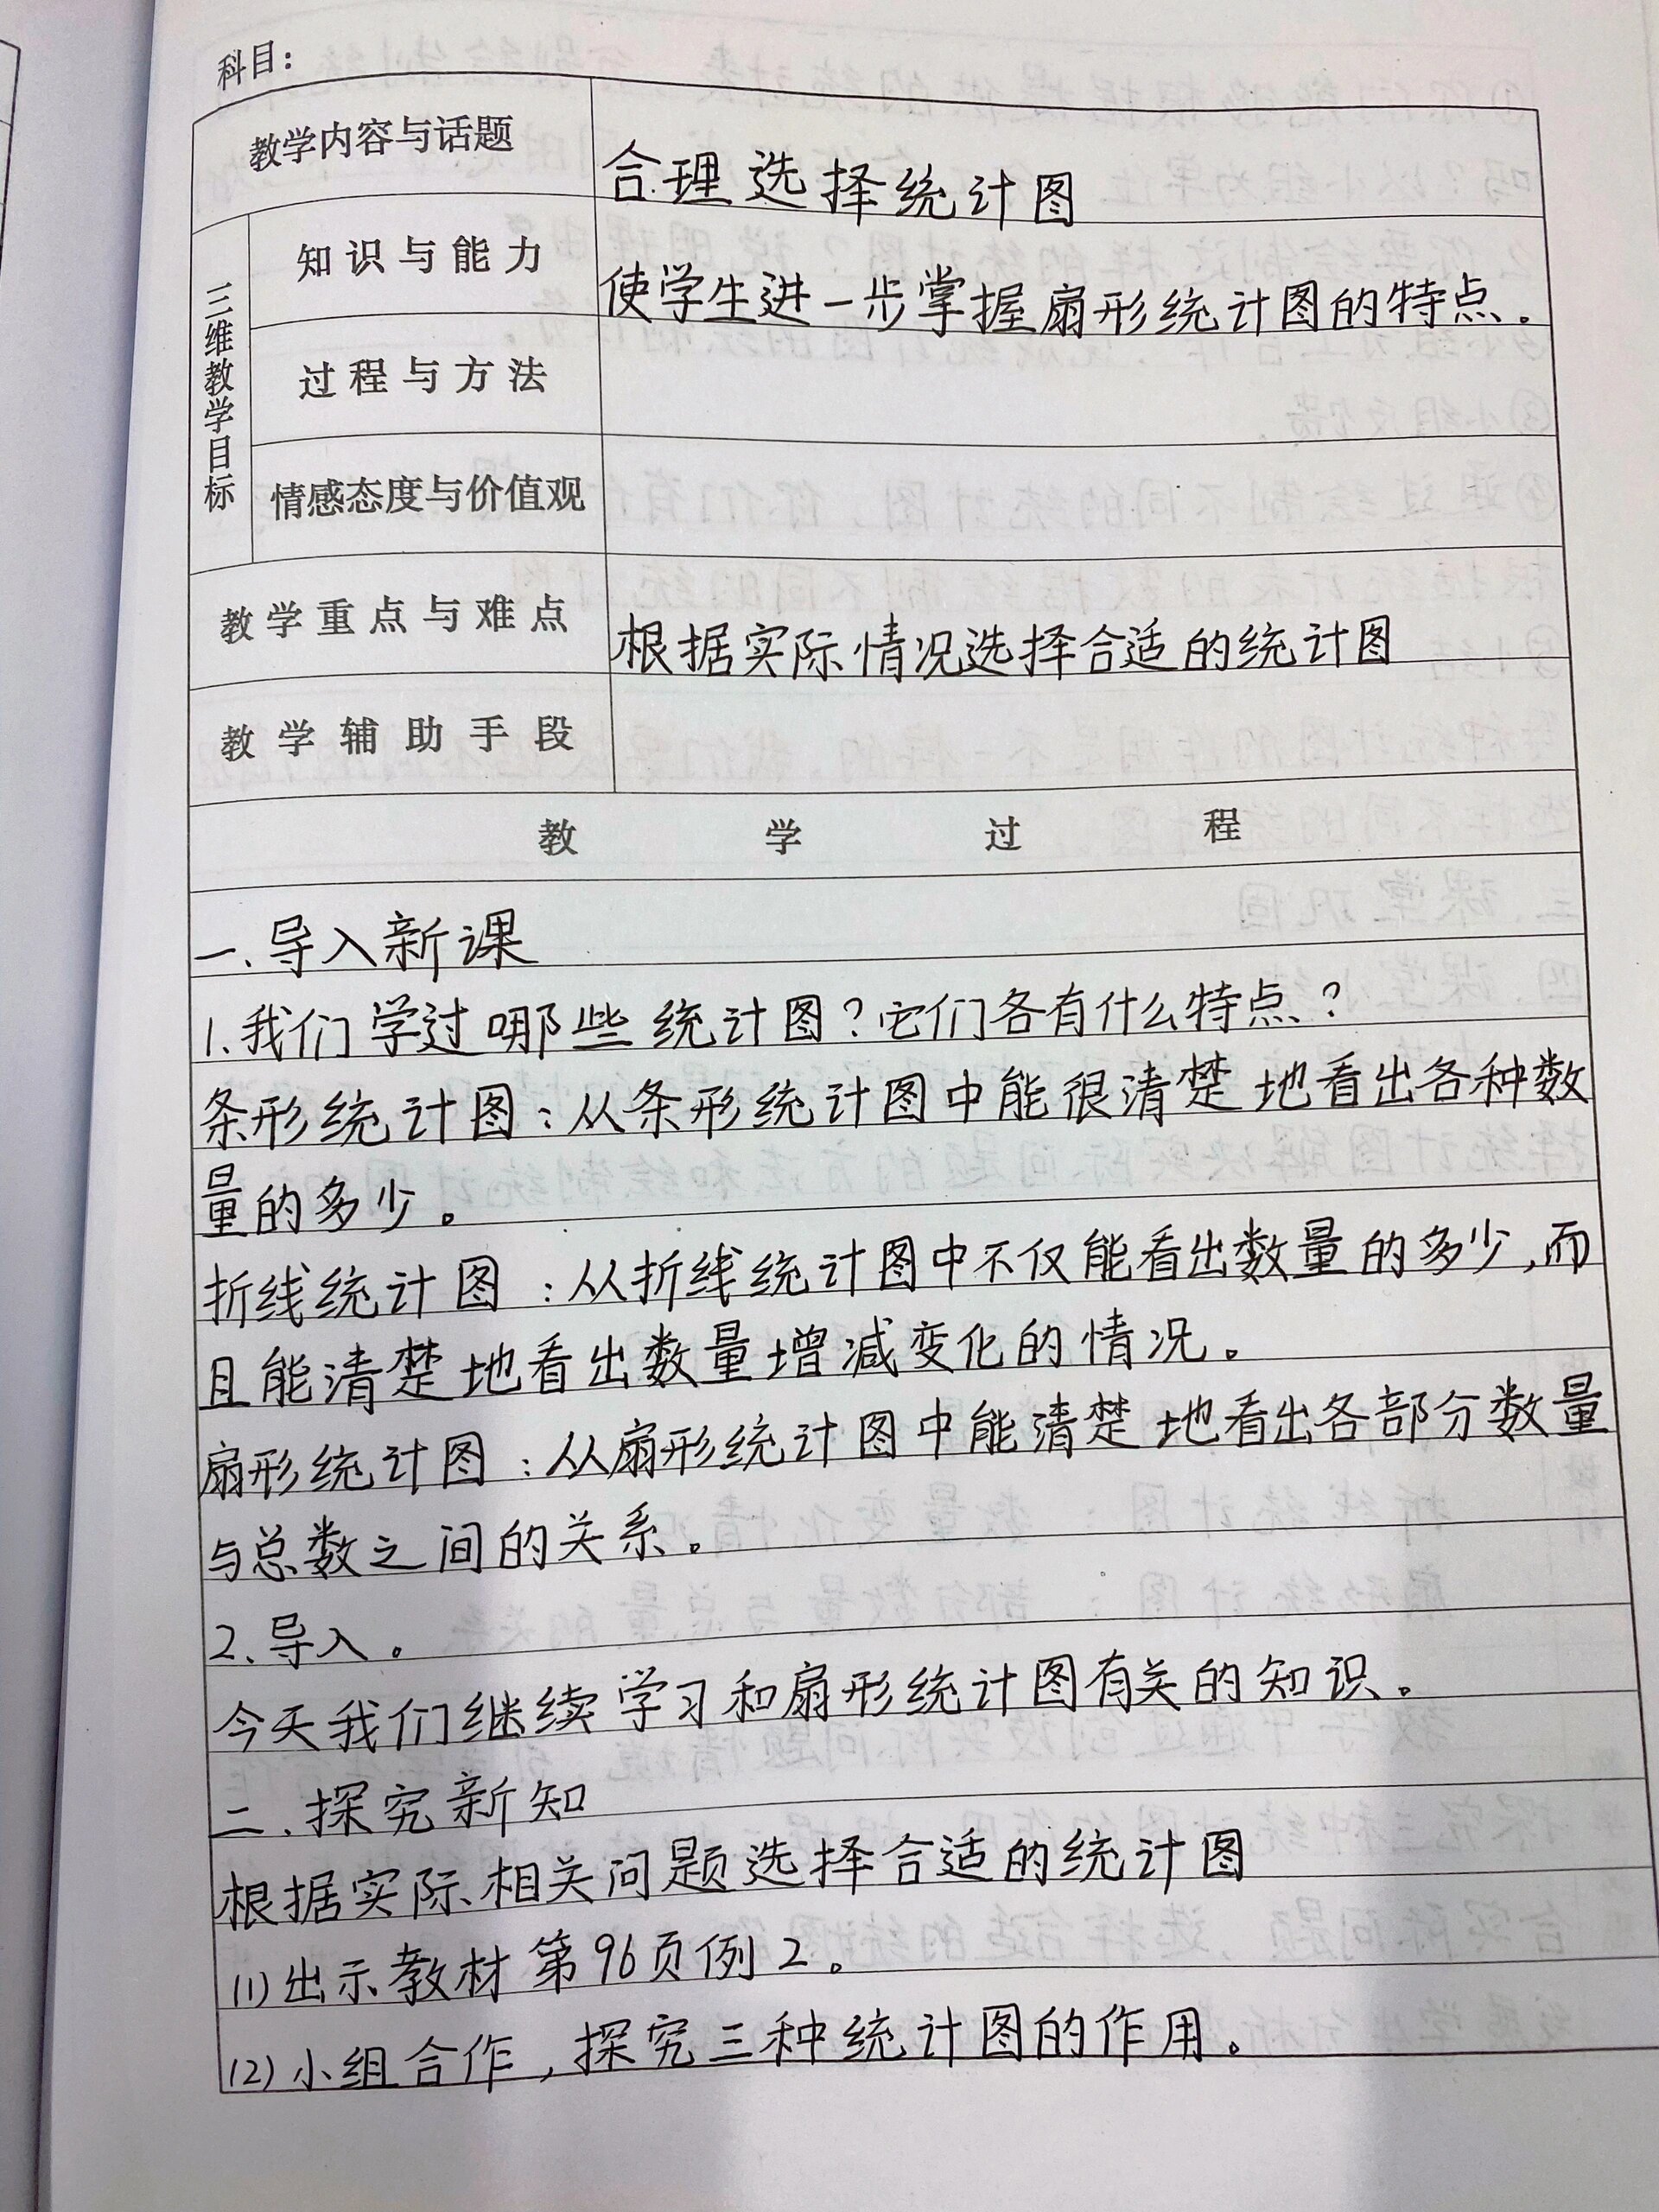 科目：
教学内容与话题
合理选择统计图
三维教学目标
知识与能力
使学生进一步掌握扇形统计图的特点.
过程与方法
情感态度与价值观
教学重点与难点
根据实际情况选择合适的统计图
教学辅助手段
教学过程
一、导入新课
1.我们学过哪些统计图?它们各有什么特点?
条形统计图:从条形统计图中能很清楚地看出各种数
量的多少。
折线统计图:从折线统计图中不仅能看出数量的多少,而
且能清楚地看出数量增减变化的情况。
扇形统计图:从扇形统计图中能清楚地看出各部分数量
与总数之间的关系。
2.导入。
今天我们继续学习和扇形统计图有关的知识。
二、探究新知
根据实际相关问题选择合适的统计图
(1)出示教材第96页例2。
(2)小组合作,探究三种统计图的作用。